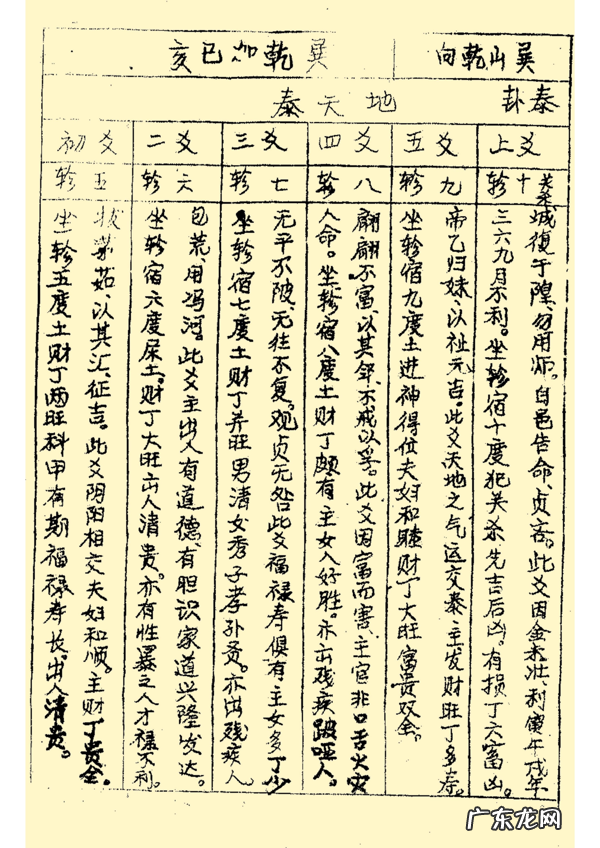 巽山乾向
巽乾加巳亥
泰卦
地天泰
上爻
轸十
城復于隍、勿用师。自邑告命、贞吝。此爻因金木壮、利寅午戌年
三六九月不利。坐轸宿十度犯关杀先吉后凶、有损丁六畜凶。
五爻
轸九
帝乙归妹、以祉元吉。此爻天地之气运交泰主发财旺丁多寿。
坐轸宿九度土进神得位夫妇和睦财丁大旺富贵双全。
四爻
轸八
翩翩、不富、以其邻、不戒以孚。此爻因富而害、主官非口舌火灾
人命。坐轸宿八度土财丁颇有主女人好胜。亦出残疾跛哑人。
三爻
轸七
无平不陂、无往不复。观贞无咎此爻福禄寿俱有主女多丁少
坐轸宿七度土财丁并旺男清女秀子孝孙贤。亦出残疾人
二爻
轸六
包荒、用冯河。此爻主出人有道德、有胆识家道兴隆发达。
坐轸宿六度屎土。财丁大旺出人清贵。亦有性暴之人才禄不利。
初爻
轸五
拔茅茹、以其汇、征吉。此爻阴阳相交夫妇和顺。主财丁贵全。
坐轸五度土财丁两旺科甲有期福禄寿长、出人清贵。
广东龙网